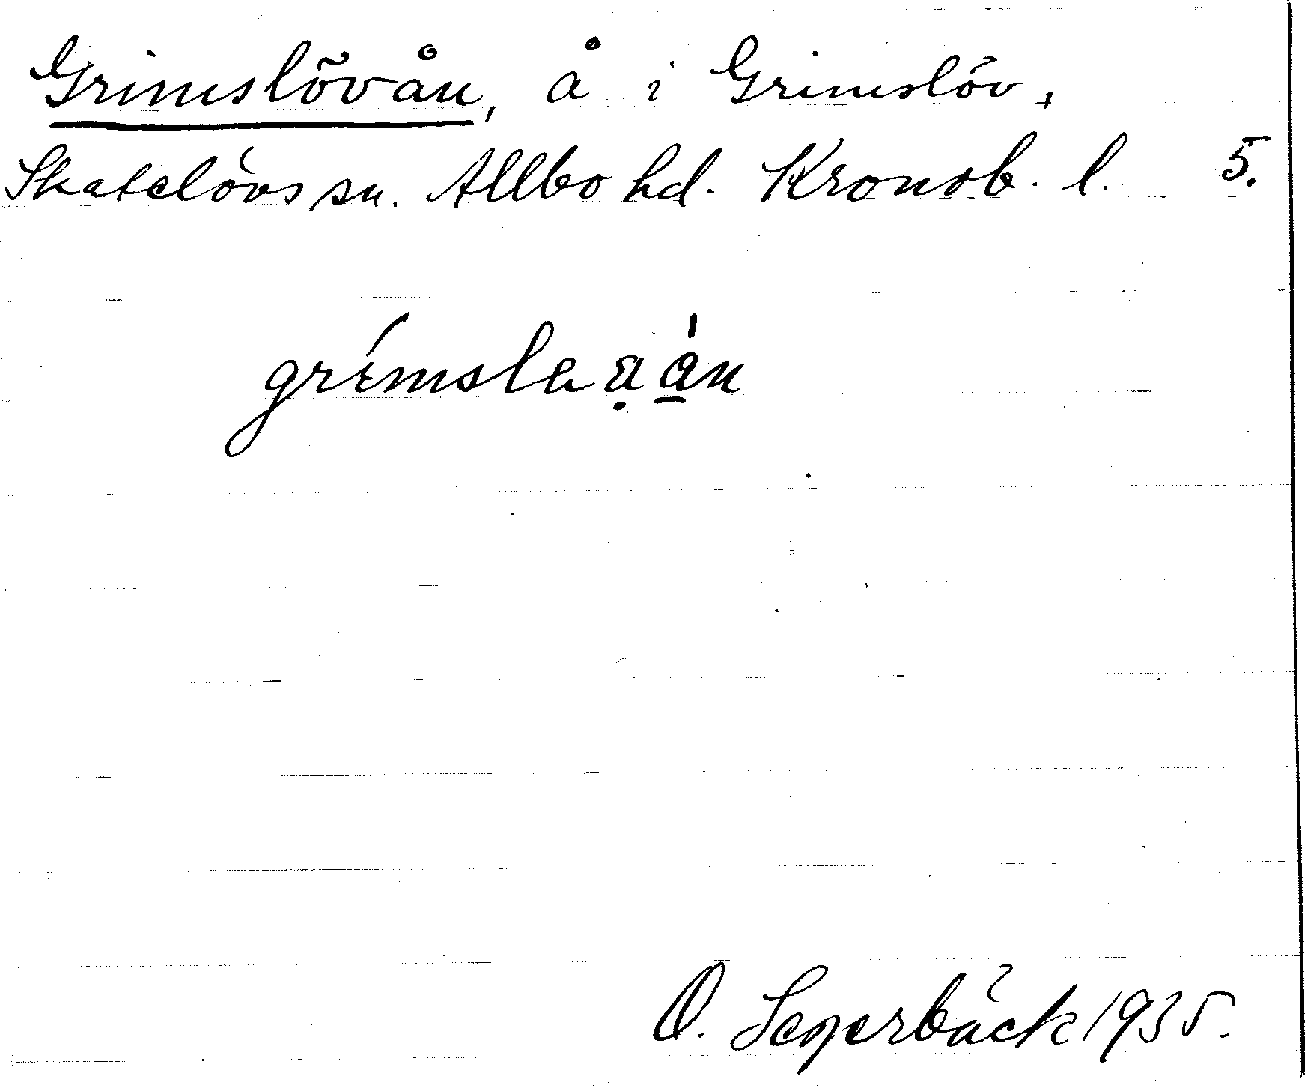 Grimslövån, å i Grimslöv,
Skatelövs sn. Allbo hd. Kronob. l. 5.
O. Segerbäck 1935.